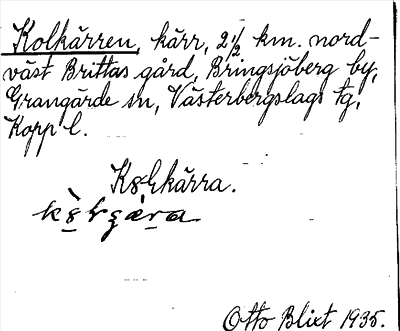 Kolkärren, kärr, 2½ km. nord-
väst Brittas gård, Bringsjöberg by,
Grangärde sn, Västerbergslags tg,
Kopp l.
Otto Blixt 1935.